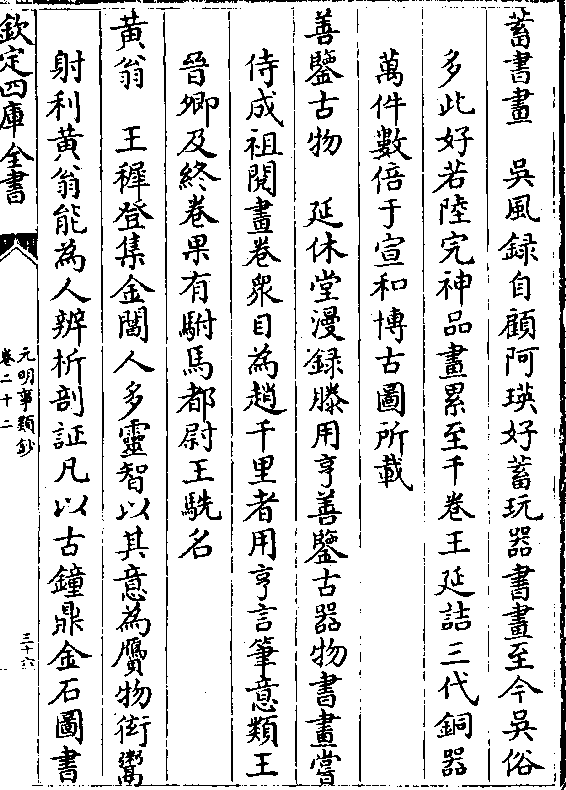 蓄書畫　吳風録自顧阿瑛好蓄玩器書畫至今吳俗
多此好若陸完神品畫累至千卷王延喆三代銅器
萬件數倍于宣和博古圖所載
善鑒古物　延休堂漫録滕用亨善鑒古器物書畫嘗
侍成祖閱畫卷衆目為趙千里者用亨言筆意類王
晉卿及終卷果有駙馬都尉王駪名
黃翁　王穉登集金閶人多靈智以其意為贗物衒鬻
射利黃翁能為人辨析剖証凡以古鐘鼎金石圖書
欽定四庫全書
元明事類鈔
卷二十二
三十六